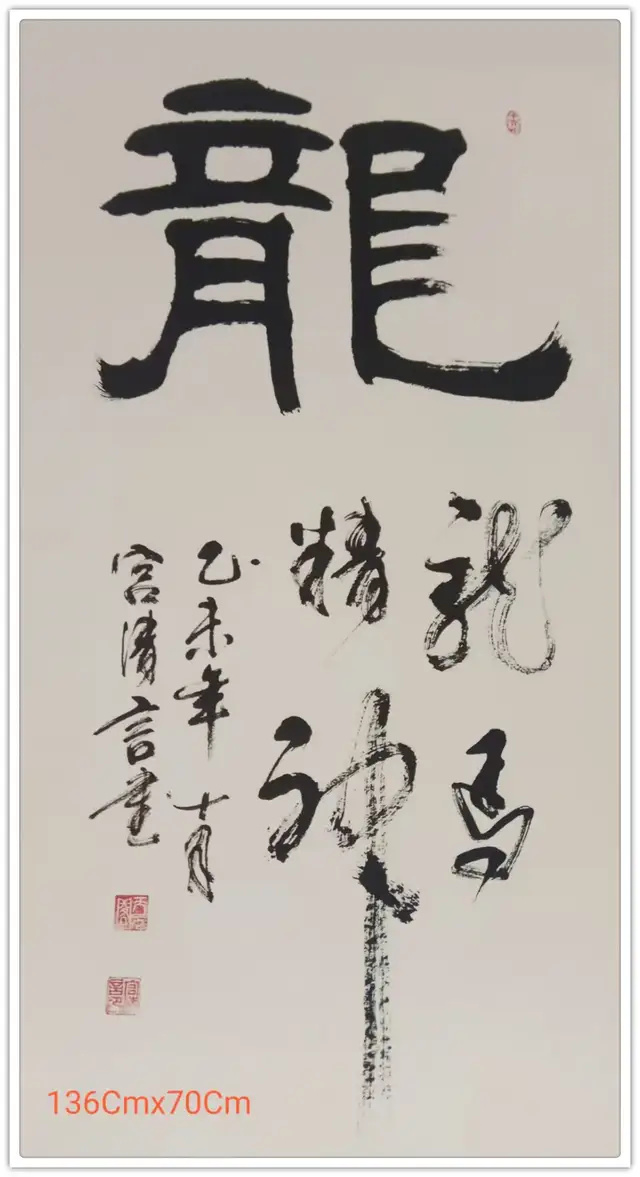 龍
龍马
精神
乙未年十月
宫清言书
136Cmx70Cm